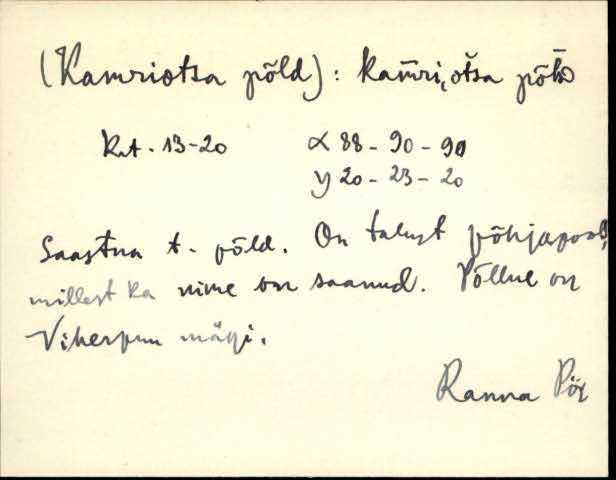 (Kamriotsa põld) : kam̄ri,otsa põld
Krt. 13-20 X 88 - 90 - 90
y 20 - 23 - 20
Saastna t. põld. On talust põhjapool,
millest ka nime on saanud. Põllul on
Viherpuu mägi.
Ranna Pöi